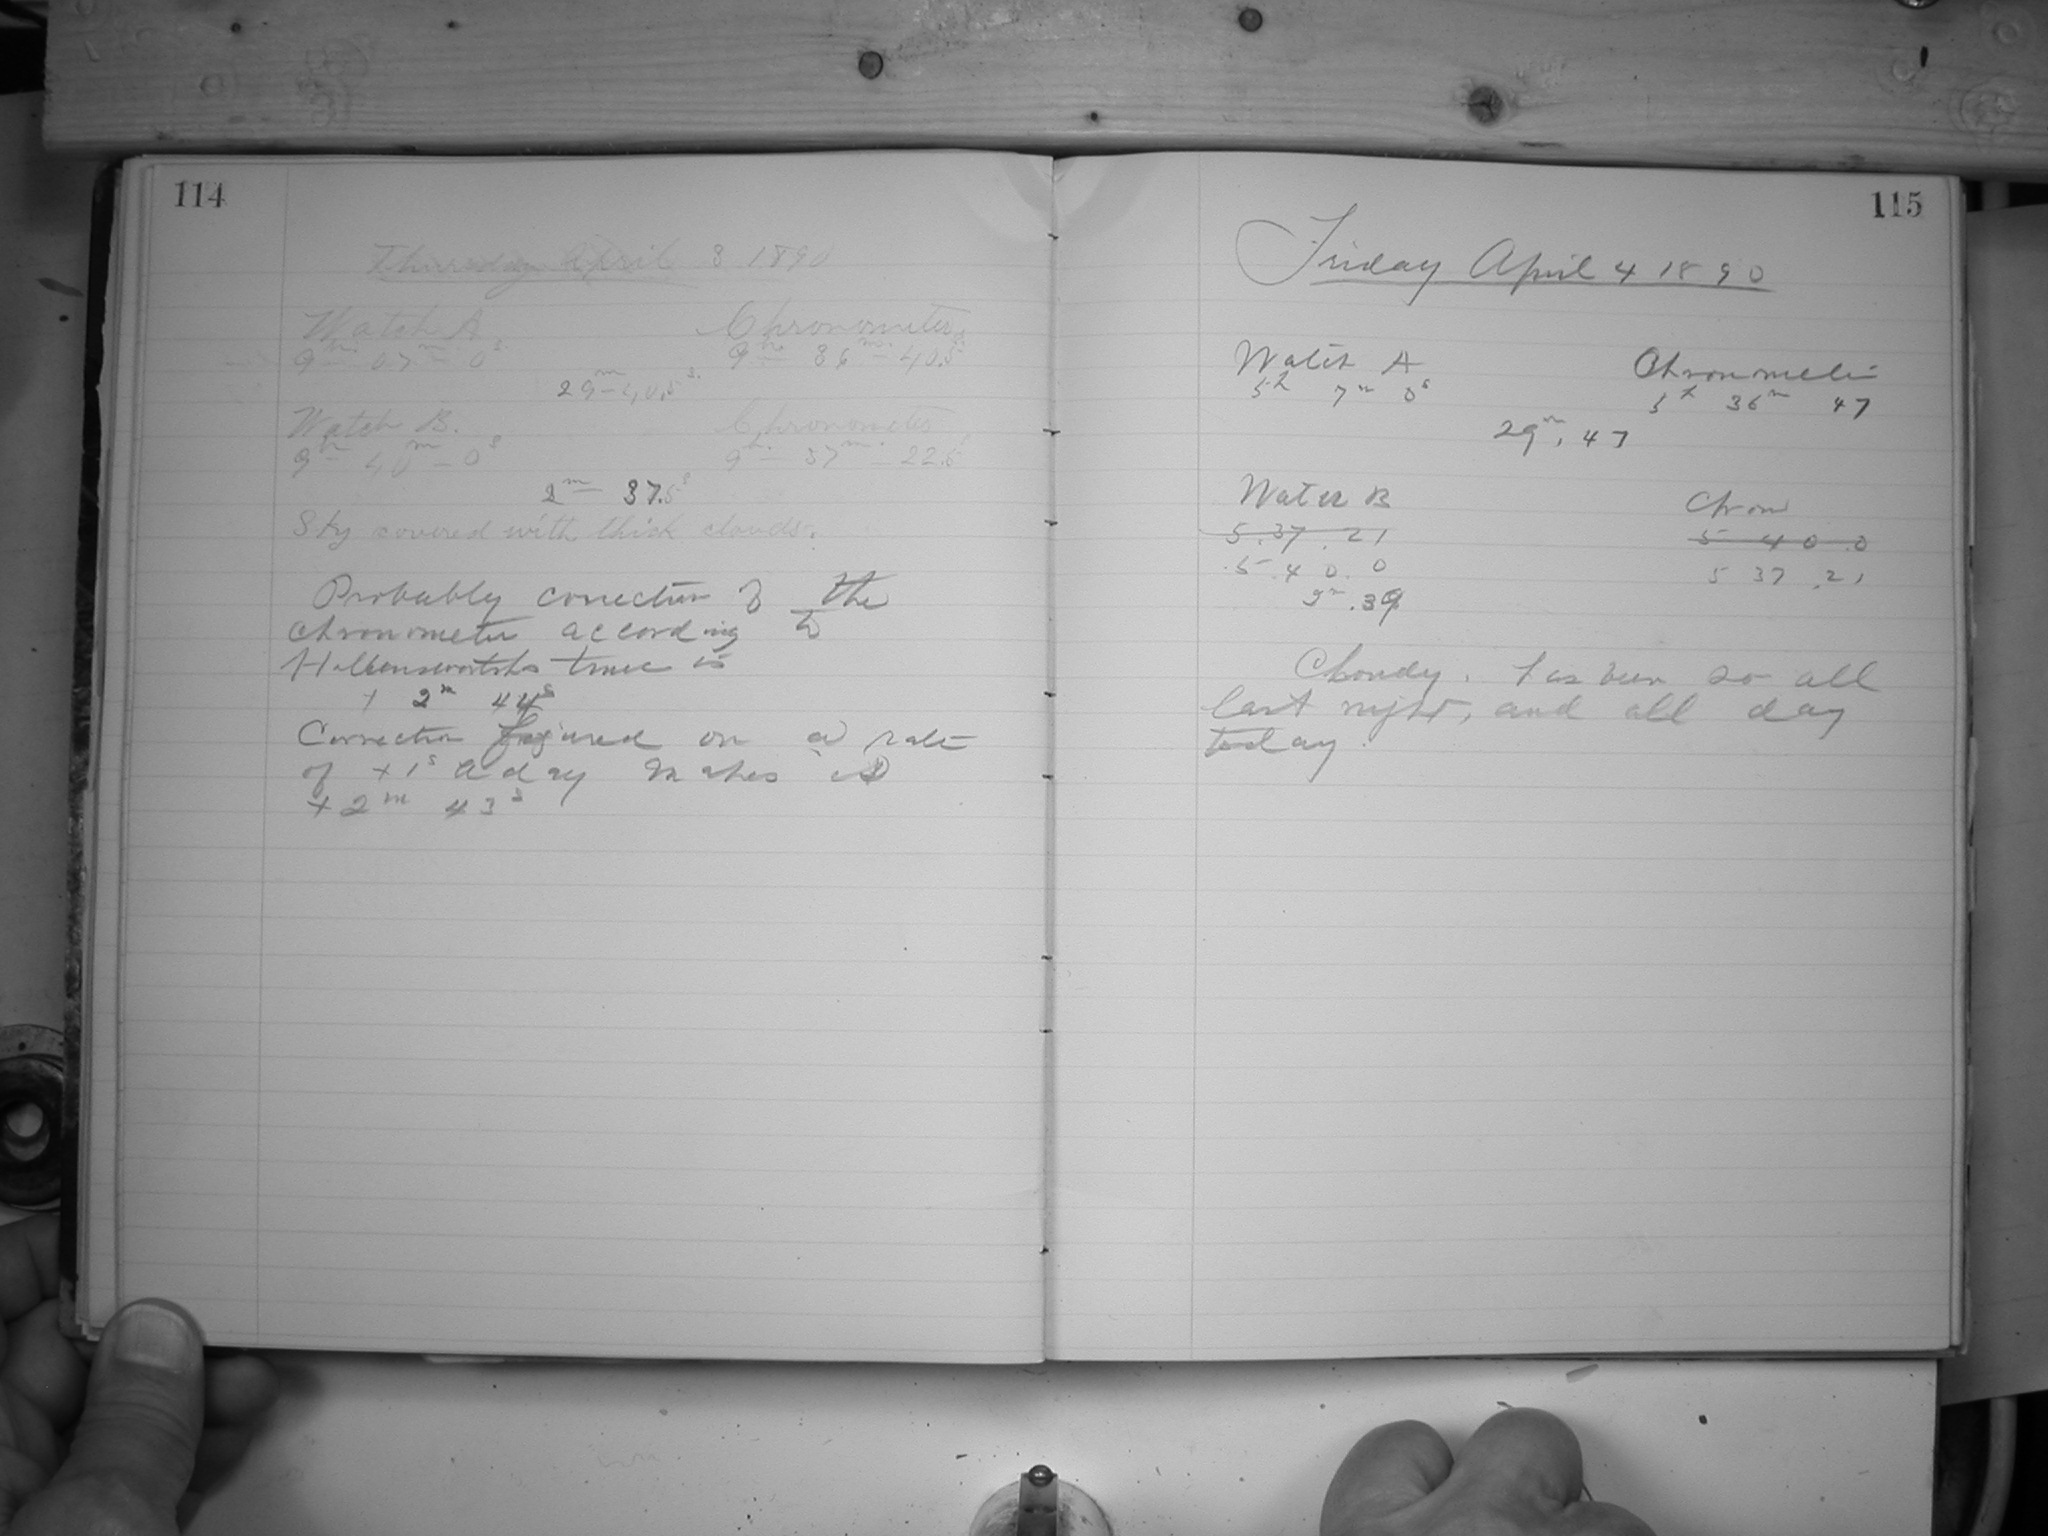 114
Thursday April 3 1890
Watch A. Chronometer.
9h. — 07m — 0s. 9h. — 36m. — 40.5s
29m — 40.5s.
Watch B. Chronometer
9h — 40m — 0s 9h. — 37m. — 22.5s
2m — 37.5s
Sky covered with thick clouds.
Probably correction of the
chronometer according to
time is
+ 2m 44s
Correction figured on a rate
of +1s a day makes it
+2m 43s
115
Friday April 4 1890
Watch A Chronometer
5h 7m 0s 5h 36m 47
29m. 47
Watch B Chron
5.37.21 5 40.0
5.40.0 5 37.21
2m.39
Cloudy. Has been so all
last night, and all day
today.